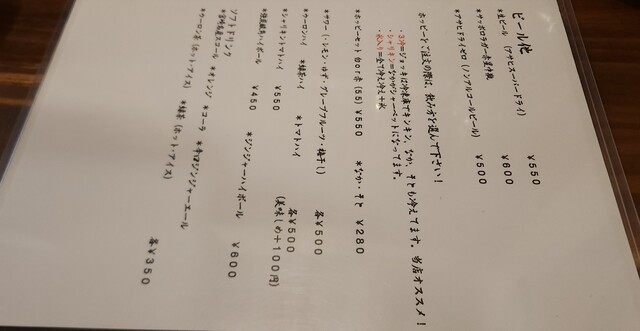 ビール他
*生ビール (アサヒスーパードライ) ¥550
*サッポロラガー赤星中瓶 ¥600
*アサヒドライゼロ(ノンアルコールビール) ¥500
ホッピーをご注文の際は、飲み方を選んで下さい!
・三冷=ジョッキは冷凍庫でキンキン、なか、そとも冷えてます。当店オススメ!
・シャリキン=なかがシャーベットになってます。
・氷入り=全て冷え冷え+氷
*ホッピーセット白or赤(55) ¥550 *なか・そと ¥280
*サワー(・レモン・ゆず・グレープフルーツ・梅干し) 各¥500
*ウーロンハイ *緑茶ハイ *トマトハイ 各¥500
*シャリキントマトハイ ¥550 (美味しめ+100円)
ハイボール ¥450 *ジンジャーハイボール ¥600
ソフトドリンク
スコール *オレンジ *コーラ *辛口ジンジャーエール
*ウーロン茶(ホット・アイス) *緑茶(ホット・アイス) 各¥350